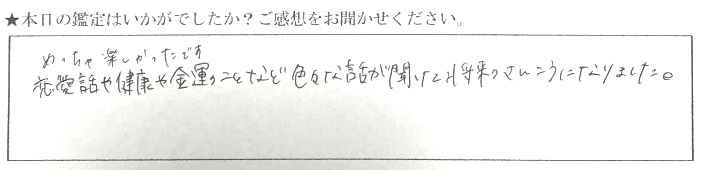 ★本日の鑑定はいかがでしたか？ご感想をお聞かせください。
めっちゃ楽しかったです
恋愛話や健康や金運のことなど色々な話が聞けて将来のさんこうになりました。